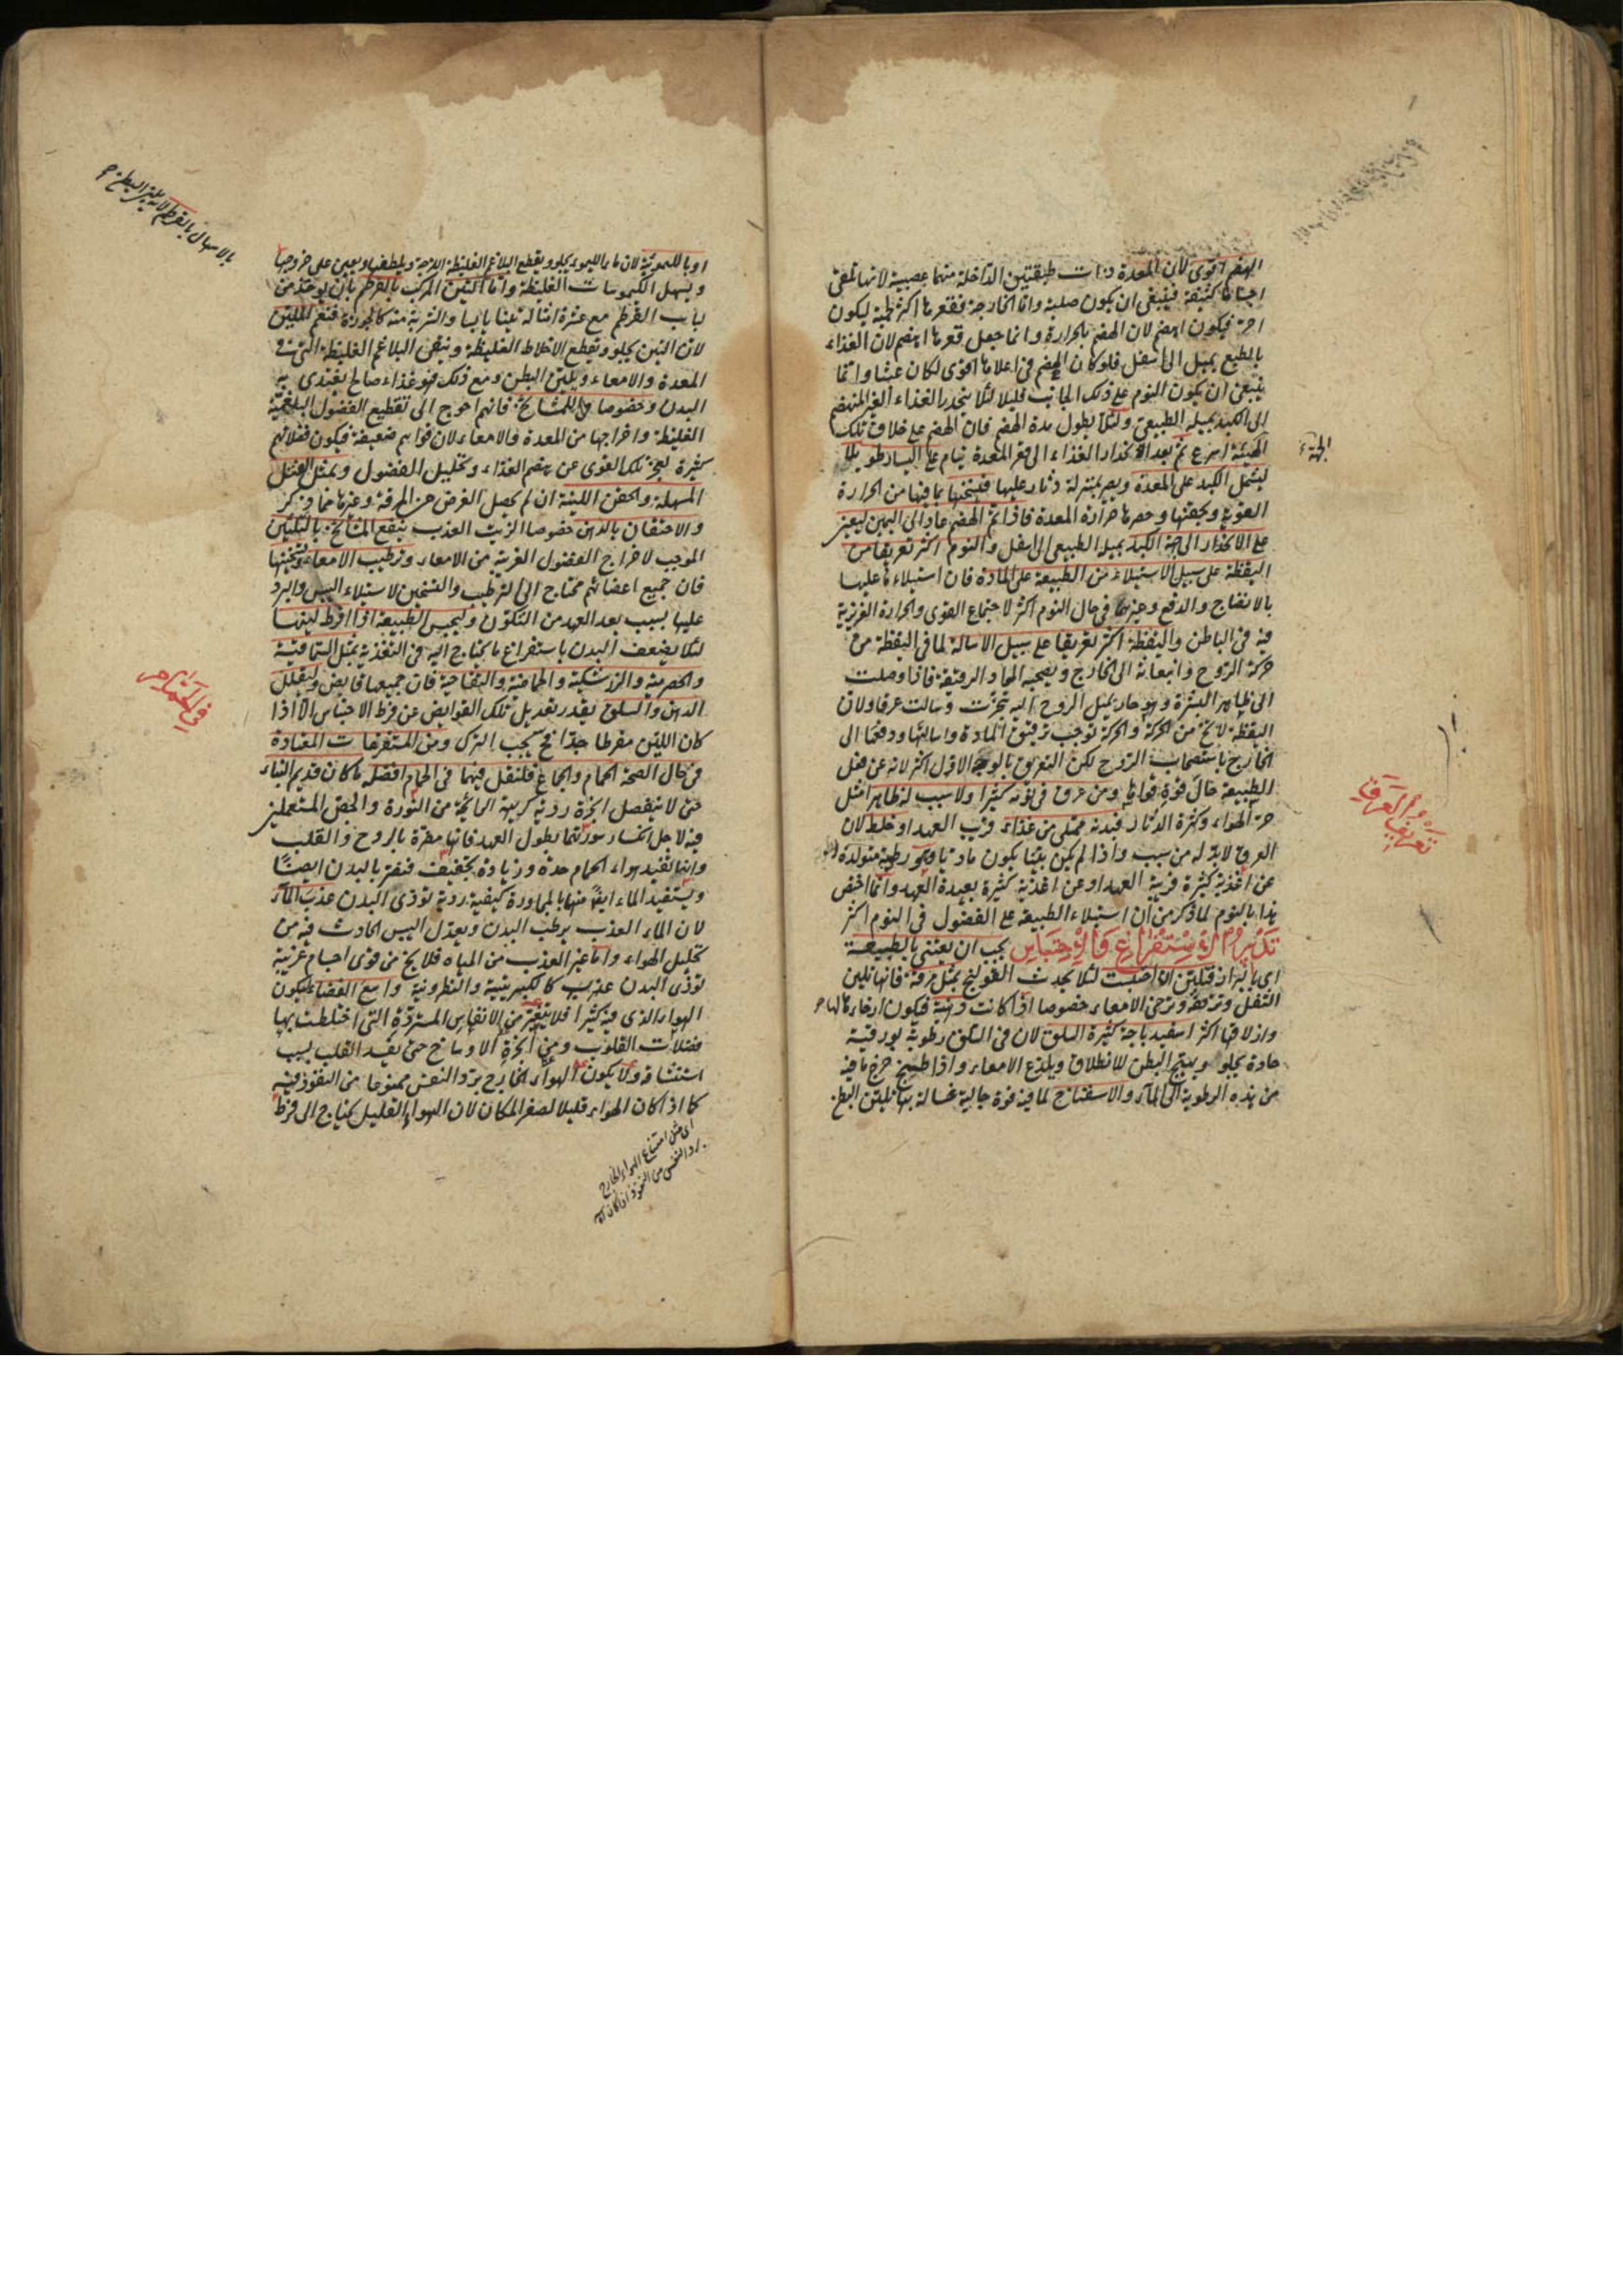 الهضم اقوى لان المعدة ذات طبقتين الداخلة منهما عصبية لانها تلقى
اجساما كثيفة فينبغى ان يكون صلبة واما الخارجة فقعرها اكثر لحمية ليكون
احر فيكون اهضم لان الهضم بالحرارة وانما جعل قعرها اهضم لان الغذاء
بالطبع يميل الى اسفل فلو كان الهضم فى اعلاها اقوى لكان عبثا وانما
ينبغى ان يكون النوم على ذلك الجانب قليلا لئلا ينحدر الغذاء الغير المنهضم
الى الكبد بميله الطبيعى ولئلا يطول مدة الهضم فان الهضم على خلاف تلك
الجهة
الهيئة اسرع ثم بعد انحدار الغذاء الى قعر المعدة ينام على اليسار طويلا
ليشتمل الكبد على المعدة ويصير بمنزلة دثار عليها فيسخنها بما فيها من الحرارة
القوية ويحقنها وحصرها حرارة المعدة فاذا تم الهضم عاد الى اليمين ليعين
على الانحدار الى جهة الكبد بميله الطبيعى الى اسفل والنوم اكثر تعريقا من
اليقظة على سبيل الاستيلاء من الطبيعة على المادة فان استيلاءها عليها
بالانضاج والدفع وغيرهما فى حال النوم اكثر لاجتماع القوى والحرارة الغريزية
فيه فى الباطن واليقظة اكثر تعريقا على سبيل الاسالة لما فى اليقظة من
حركة الروح وانبعاثه الى الخارج ويصحبه المواد الرقيقة فاذا وصلت
الى ظاهر البشرة وهو حار بميل الروح اليه تبخرت وسالت عرقا ولان
اليقظة لا تخ من الحركة والحركة توجب ترقيق المادة واسالتها ودفعها الى
الخارج باستصحاب الروح لكن التعريق بالوجه الاول اكثر لانه عن فعل
الطبيعة حال قوة قواها ومن عرق فى نومه كثيرا ولا سبب له ظاهر مثل
حر الهواء وكثرة الدثار فبدنه ممتلى من غذاء قريب العهد او خلط لان
تعريق
العرق لابد له من سبب واذا لم يكن بدنيا يكون ماديا وهو رطوبة متولدة
عن اغذية كثيرة قريبة العهد او عن اغذية كثيرة بعيدة العهد وانما اختص
هذا بالنوم لما ذكر من ان استيلاء الطبيعة على الفضول فى النوم اكثر
تدبير الاستفراغ والاحتباس يجب ان يعتنى بالطبيعة
اى بالبراز فتلين ان احتبست لئلا يحدث القولنج بمثل مرقة فانها تلين
الثفل وتزلقه وترخى الامعاء خصوصا اذا كانت دهنية فيكون ارخاءها لها
وازلاقها اكثر اسفيدباجة كثيرة السلق لان فى السلق رطوبة بورقية
حادة يجلو ويهيج البطن للانطلاق ويلذع الامعاء واذا طبخ خرج ما فيه
من هذه الرطوبة الى الماء والاسفناخ لما فيه قوة جالية غسالة بها تليين البطن
بالاسهال بالقرطم لانه يلين البطن
او بالليمونية لان ماء الليمو يجلو ويقطع البلاغم الغليظة اللزجة ويلطفها ويعين على خروجها
ويسهل الكيموسات الغليظة واما التين المركب بالقرطم بان يؤخذ من
لباب القرطم مع عشرة امثاله تينا يابسا والشربة منه كالجوزة فنعم الملين
لان التين يجلو ويقطع الاخلاط الغليظة وينقى البلاغم الغليظة التى فى
المعدة والامعاء ويلين البطن ومع ذلك فهو غذاء صالح يغتذى به
البدن وخصوصا للمشايخ فانهم احوج الى تقطيع الفضول البلغمية
الغليظة واخراجها من المعدة والامعاء لان قواهم ضعيفة فيكون فضلاتهم
كثيرة لعجز تلك القوى عن هضم الغذاء وتحليل الفضول وبمثل الفتل
المسهلة والحقن اللينة ان لم يحصل الغرض من المرقة وغيرها مما ذكر
والاحتقان بالدهن خصوصا الزيت العذب ينفع المشايخ بالتليين
الموجب لاخراج الفضول الغريبة من الامعاء وترطيب الامعاء وتسخينها
فان جميع اعضائهم محتاج الى الترطيب والتسخين لاستيلاء اليبس والبرد
عليها بسبب بعد العهد من التكون وليحبس الطبيعة اذا افرط لينها
لئلا يضعف البدن باستفراغ ما يحتاج اليه فى التغذية بمثل السماقية
والحصرمية والزرشكية والحماضية والتفاحية فان جميعها قابض وليقلل
الدهن والسلق بقدر تعديل تلك القوابض عن فرط الاحتباس الا اذا
كان اللين مفرطا جدا فح يجب الترك ومن المستفرغات المعتادة
فى حال الصحة الحمام والجماع فلنقل فيهما فى الحمام افضله ما كان قديم البناء
فى الحمام
حتى لا ينفصل ابخرة ردية كريهة الرائحة من النورة والجص المستعملين
فيه لاجل انكسار سورتهما بطول العهد فانها مضرة بالروح والقلب
وانها تفيد هواء الحمام حدة وزيادة تجفيف فيضر بالبدن ايضا
ويستفيد الماء ايضا منها بالمجاورة كيفية ردية تؤذى البدن عذب الماء
لان الماء العذب يرطب البدن ويعدل اليبس الحادث فيه من
تحليل الهواء واما غير العذب من المياه فلا يخ من قوى اجسام غريبة
تؤذى البدن عذب كالكبريتية والنطرونية واسع الفضاء ليكون
الهواء الذى فيه كثيرا فلا يتغير من الانفاس المستردة التى اختلطت بها
فضلات القلوب ومن ابخرة الاوساخ حتى يفسد القلب بسبب
استنشاقه ولا يكون الهواء الخارج برد النفس ممنوعا من النفوذ فيه
كما اذا كان الهواء قليلا لصغر المكان لان الهواء القليل يحتاج الى فرط
اى مثل امتناع الهواء الخارج
برد النفس من النفوذ اذا كان